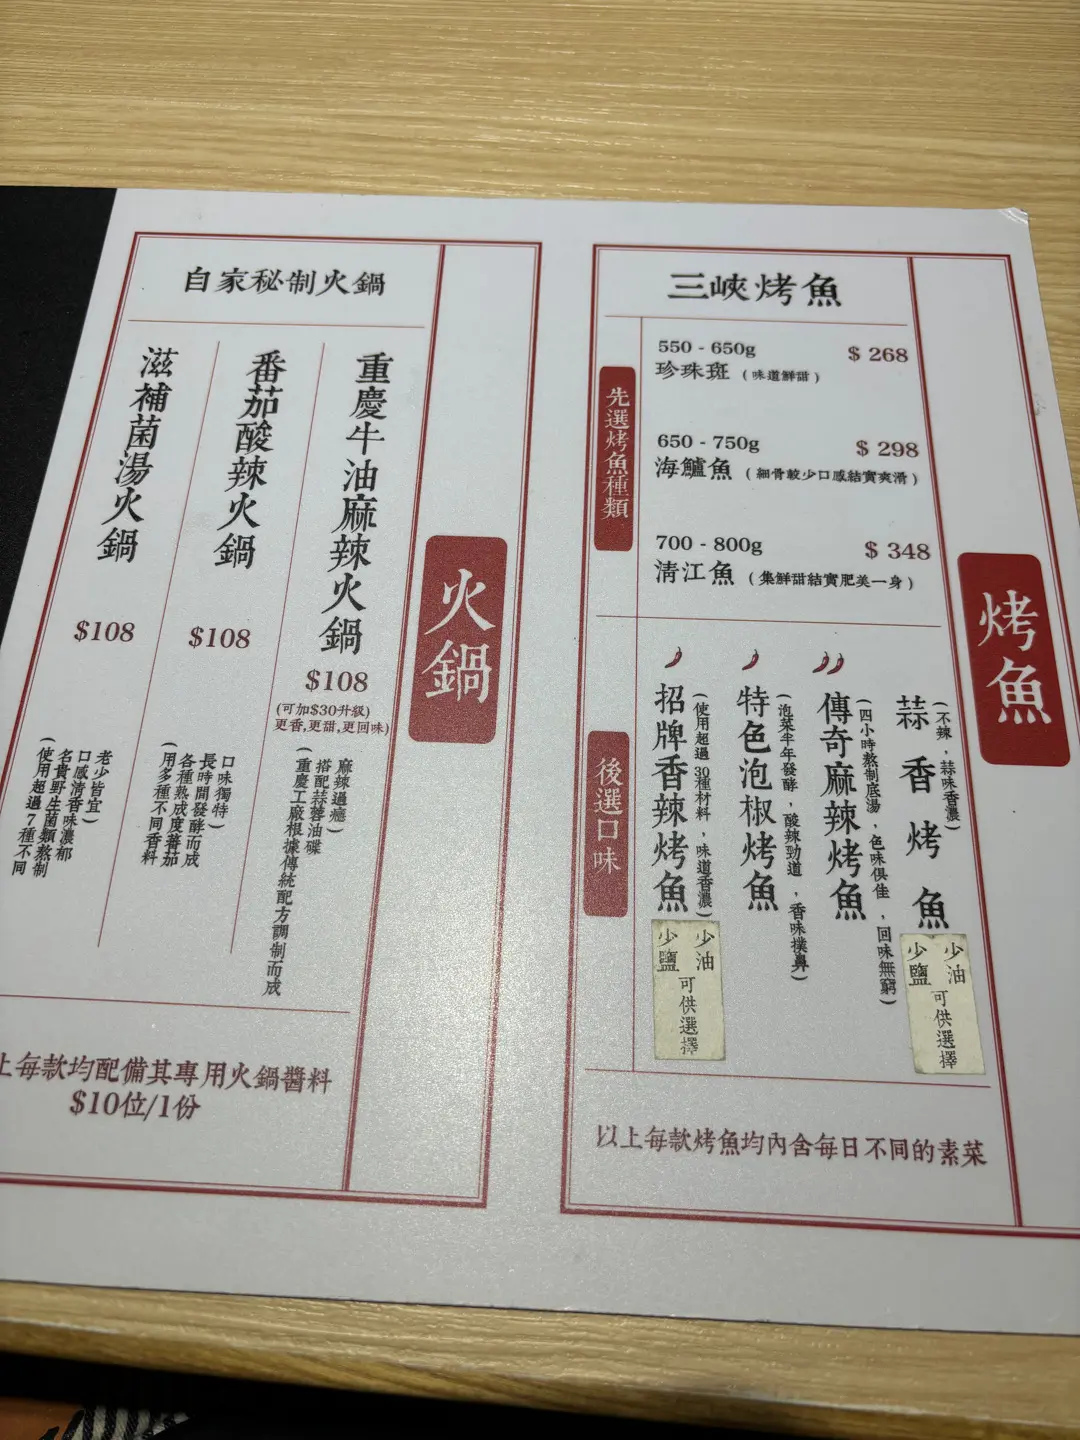 自家秘制火鍋
重慶牛油麻辣火鍋
$108
(可加$30升級)
更香,更甜,更回味)
(重慶工廠根據傳統配方調制而成
搭配蒜蓉油碟
麻辣過癮)
番茄酸辣火鍋
$108
(用多種不同香料
各種熟成度蕃茄
長時間發酵而成
口味獨特)
滋補菌湯火鍋
$108
(使用超過7種不同
名貴野生菌類熬制
口感清香味濃郁
老少皆宜)
上每款均配備其專用火鍋醬料
$10位/1份
火鍋
三峽烤魚
先選烤魚種類
550 - 650g
珍珠斑 (味道鮮甜)
$ 268
650 - 750g
海鱸魚 (細骨較少口感結實爽滑)
$ 298
700 - 800g
清江魚 (集鮮甜結實肥美一身)
$ 348
後選口味
招牌香辣烤魚
(使用超過30種材料,味道香濃)
少油
少鹽
可供選擇
特色泡椒烤魚
(泡菜半年發酵,酸辣勁道,香味撲鼻)
傳奇麻辣烤魚
(四小時熬制底湯,色味俱佳,回味無窮)
蒜香烤魚
(不辣,蒜味香濃)
少油
少鹽
可供選擇
以上每款烤魚均內含每日不同的素菜
烤魚